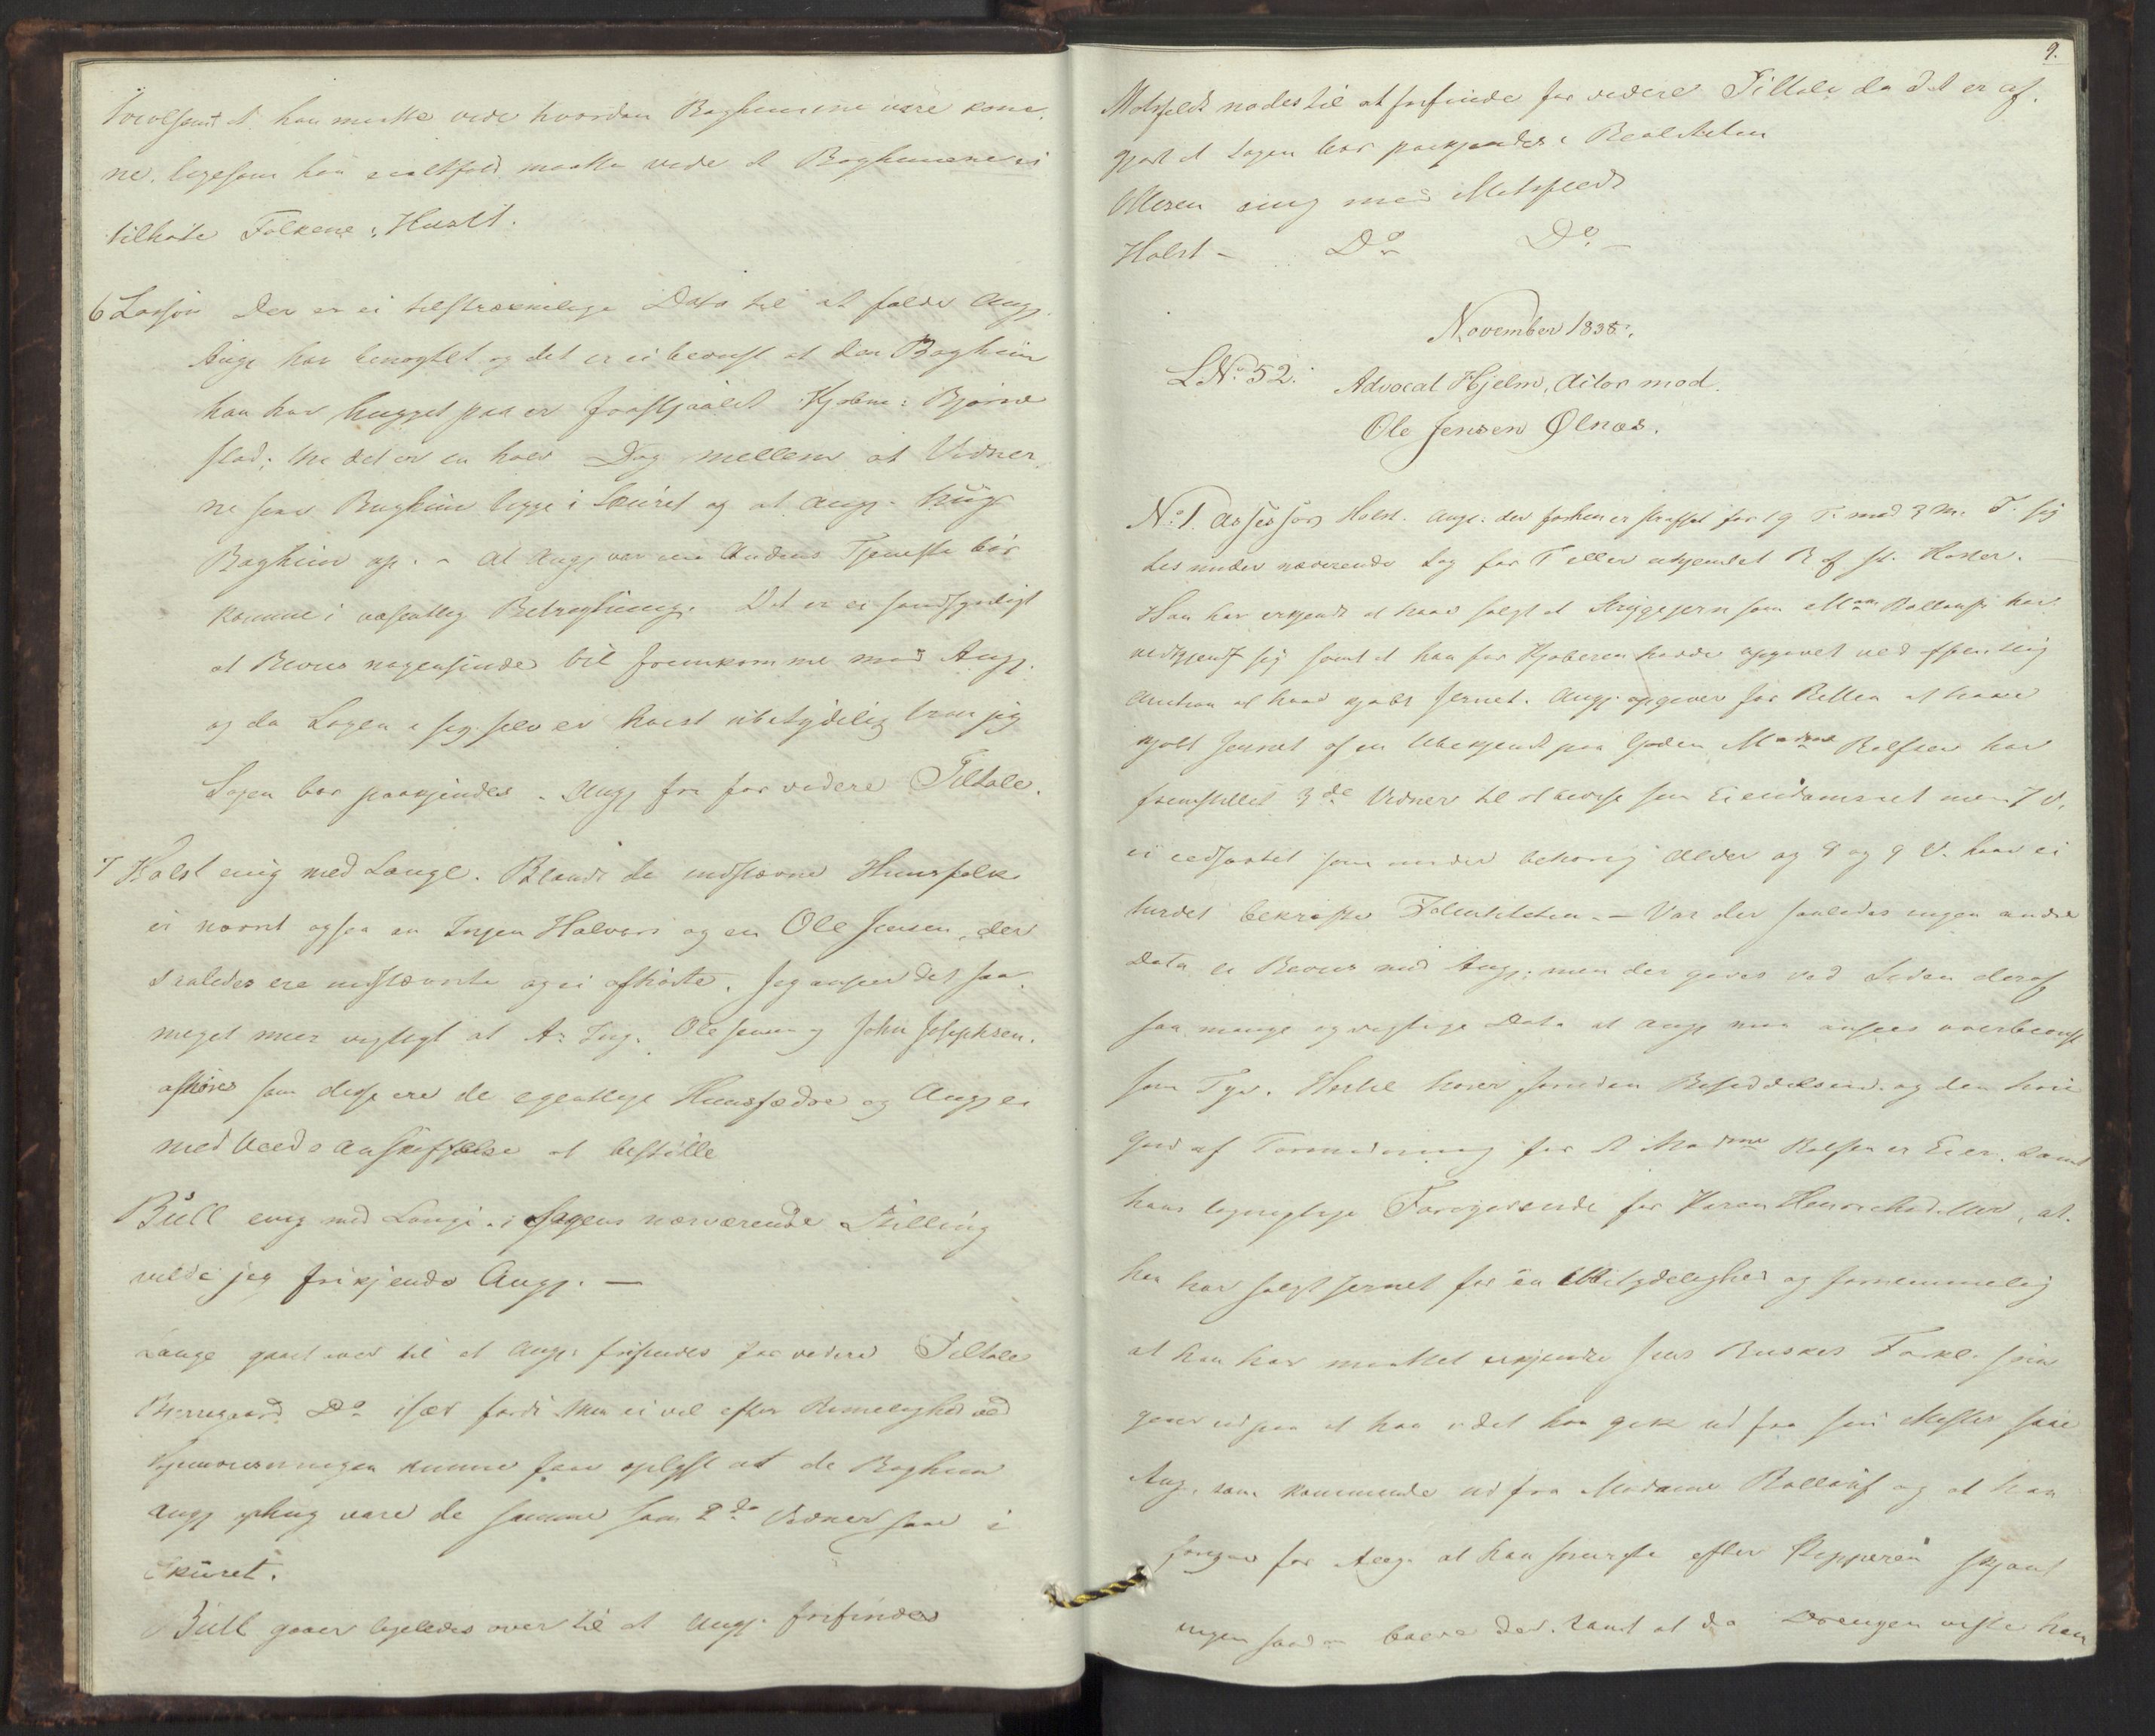 tvivlsomt at han maatte vide hvordan Baghunene vare komne
ne, ligesom han i ethvertfald maatte vide at Baghunene ei
tilhørte Folkene i Huset.
6 Lasson Der er ei tilstrækkelige Data til at fælde Angj.
Angj. har benegtet og det er ei beviist at den Baghun
han har hugget paa er frastjaalet Kjøbm: Bjørne
stad; thi det er en heel Dag mellem at Vidner
ne saae Baghun ligge i Skuret og at Angj. hug
Baghun op. - At Angj. var i en Andens Tjeneste bør
komme i væsentlig Betragtning. Det er ei sandsynligt
at Beviis nogensinde vil fremkomme mod Angj.
og da Sagen i sig selv er høist ubetydelig troer jeg
Sagen bør paakjendes. Angj. fri for videre Tiltale.
7 Holst enig med Lange. Blandt de indstævnte Huusfolk
er nævnt ogsaa en Halvors og en Ole Jensen, der
saaledes ere indstævnte og ei afhørte. Jeg anseer det saa
meget meer vigtigt at Ole Jensen og John Josephsen
afhøres som disse ere de egentlige Huusfædre og Angj. er
med Veeds Anskaffelse at bestille
Bull enig med Lange. i Sagens nærværende Stilling
vilde jeg frikjende Angj. —
Lange gaaet over til at Angj. frifindes for videre Tiltale
Bjerregaard Do især fordi Man ei vel efter Rimelighed ved
Hjemviisningen kunne faae oplyst at de Baghun
Angj. ophug vare de samme som 2de Vidner saae i
Skuret.
Bull gaaer ligeledes over til at Angj. frifindes
9.
Motzfeldt nødes til at frifinde for videre Tiltale da det er af-
gjort at Sagen bør paakjendes i Realiteten
Ottesen enig med Motzfeldt
Holst - Do Do -
November 1838.
L.No. 52. Advocat Hjelm, Actor mod
Ole Jensen Ølnæs.
No. 1. Assessor Holst. Angj. der forhen er straffet for 1g T. med 3 M. T. sig
tes under nærværende Sag for T eller ukjendet R af st. Koster. —
Han har erkjendt at have solgt et Strygejern som Madm Rolfsen har
vedkjendt sig samt at han for Kjøberen havde opgivet ved offentlig
Auction at have kjøbt Jernet. Angj. opgiver for Retten at have
kjøbt Jernet af en Ubekjendt paa Gaden. Madme Rolfsen har
fremstillet 3de Vidner til at bevise sin Eiendomsret men 7 V.
ei edfæstet som under behørig Alder og 8 og 9 V. have ei
turdet bekræfte Identiteten. — Var der saaledes ingen andre
Data er Beviis mod Angj.; men der gives ved Siden deraf
saa mange og vigtige Data at Angj. maa ansees overbeviist
som Tyv. Hertil hører foruden Besiddelsen og den høie
Grad af Formodning for at Madme Rolfsen er Eier, samt
hans løgnagtige Foregivende for Karen Henrichsdatter, at
han har solgt Jernet for en Ubetydelighed og fornemmelig
at han har maattet erkjende Jens Buskes Forkl. som
gaaer ud paa at han idet han gik ud fra sin Mester saae
Angj. som kommende ud fra Madame Rolfsen og at han
foregav for Angj. at han spurgte efter Pepperen skjønt
ingen saadan boede der. samt at da Drengen viste ham